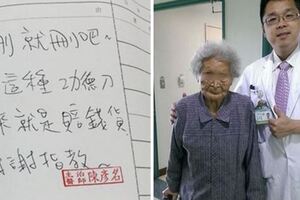 刪就刪吧~
這種功德刀
來就是賠錢貨
謝指教~
主治醫師 陳彥名